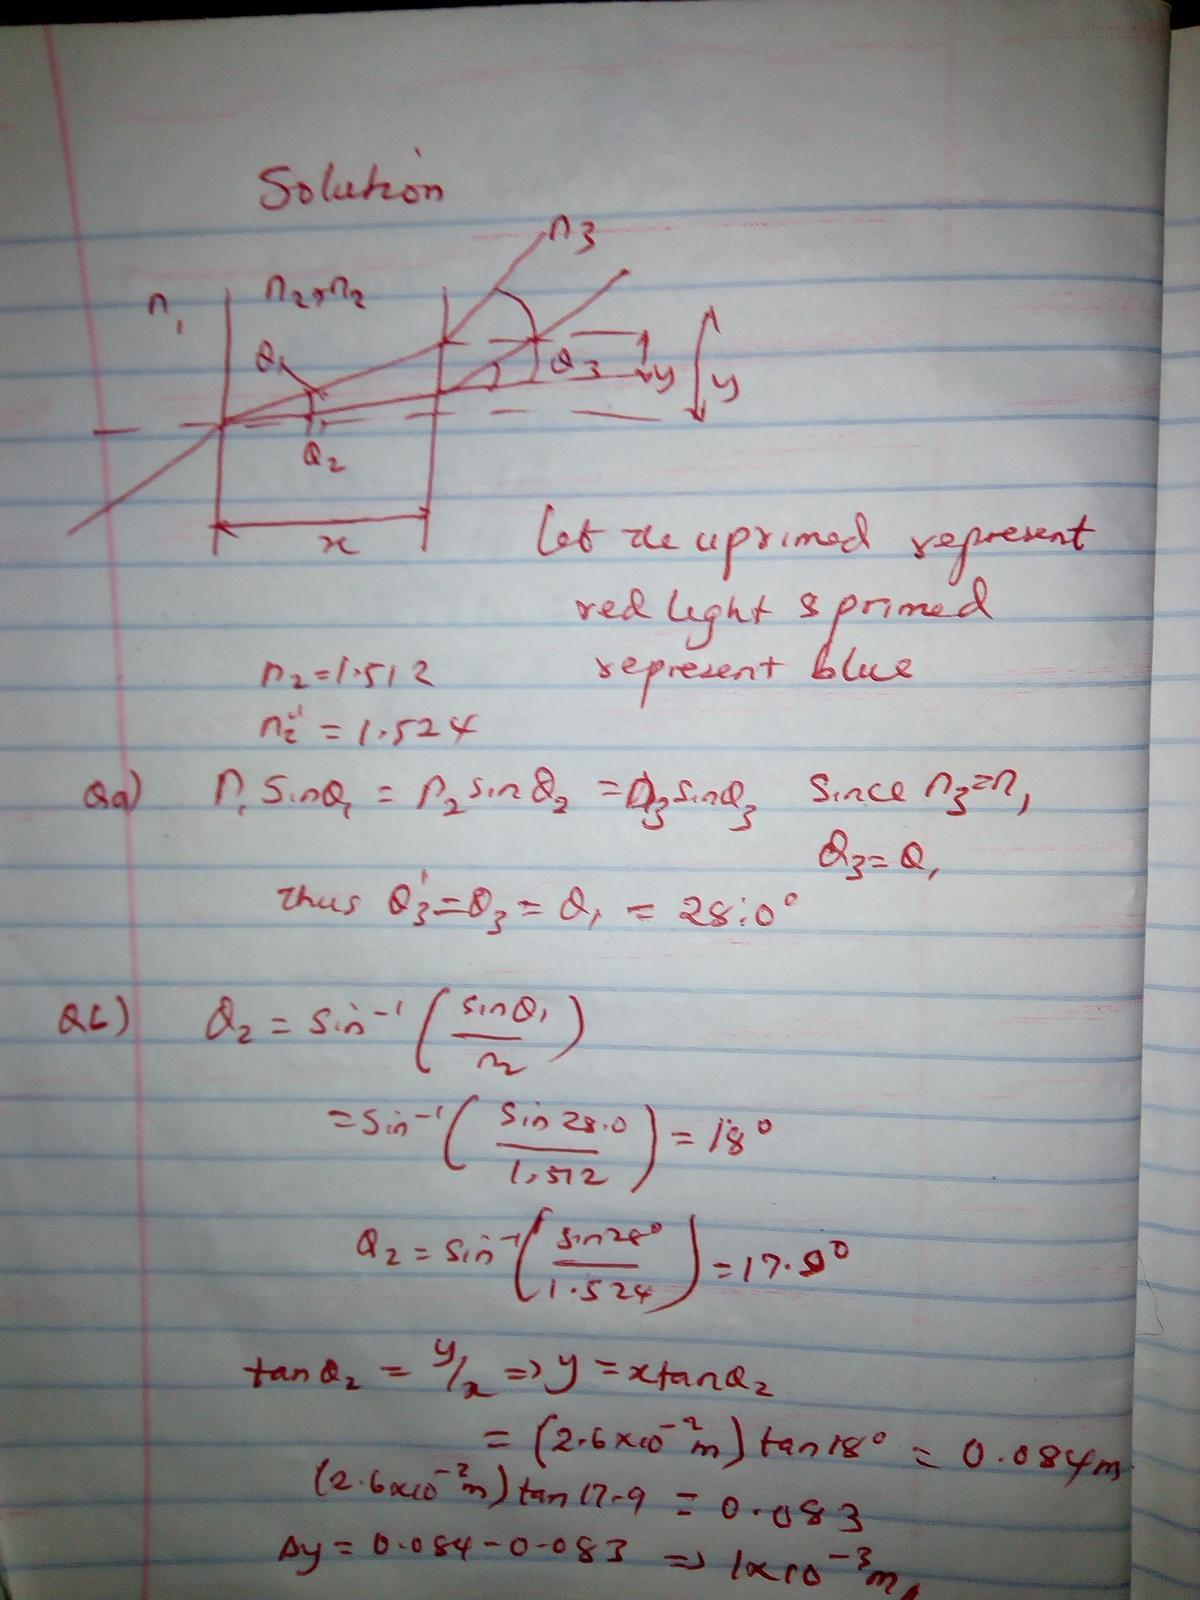 Solution
n3
n1 n2,n2
θ1 θ3 y y
θ2
x
Let the uprimed represent
red light & primed
represent blue
n2=1.512
n2' = 1.524
Qa) n1 sinθ1 = n2 sinθ2 = n3 sinθ3 Since n3=n1
θ3=θ1
thus θ3'=θ3 = θ1 = 28.0°
Qb) θ2 = sin-1 (sinθ1/n2)
=sin-1 (sin 28.0/1.512) = 18°
θ2 = sin-1 (sin28°/1.524) = 17.9°
tanθ2 = y/x => y = xtanθ2
= (2.6x10-2m) tan18° = 0.084m
(2.6x10-2m) tan 17.9 = 0.083
Δy = 0.084-0.083 => 1x10-3m